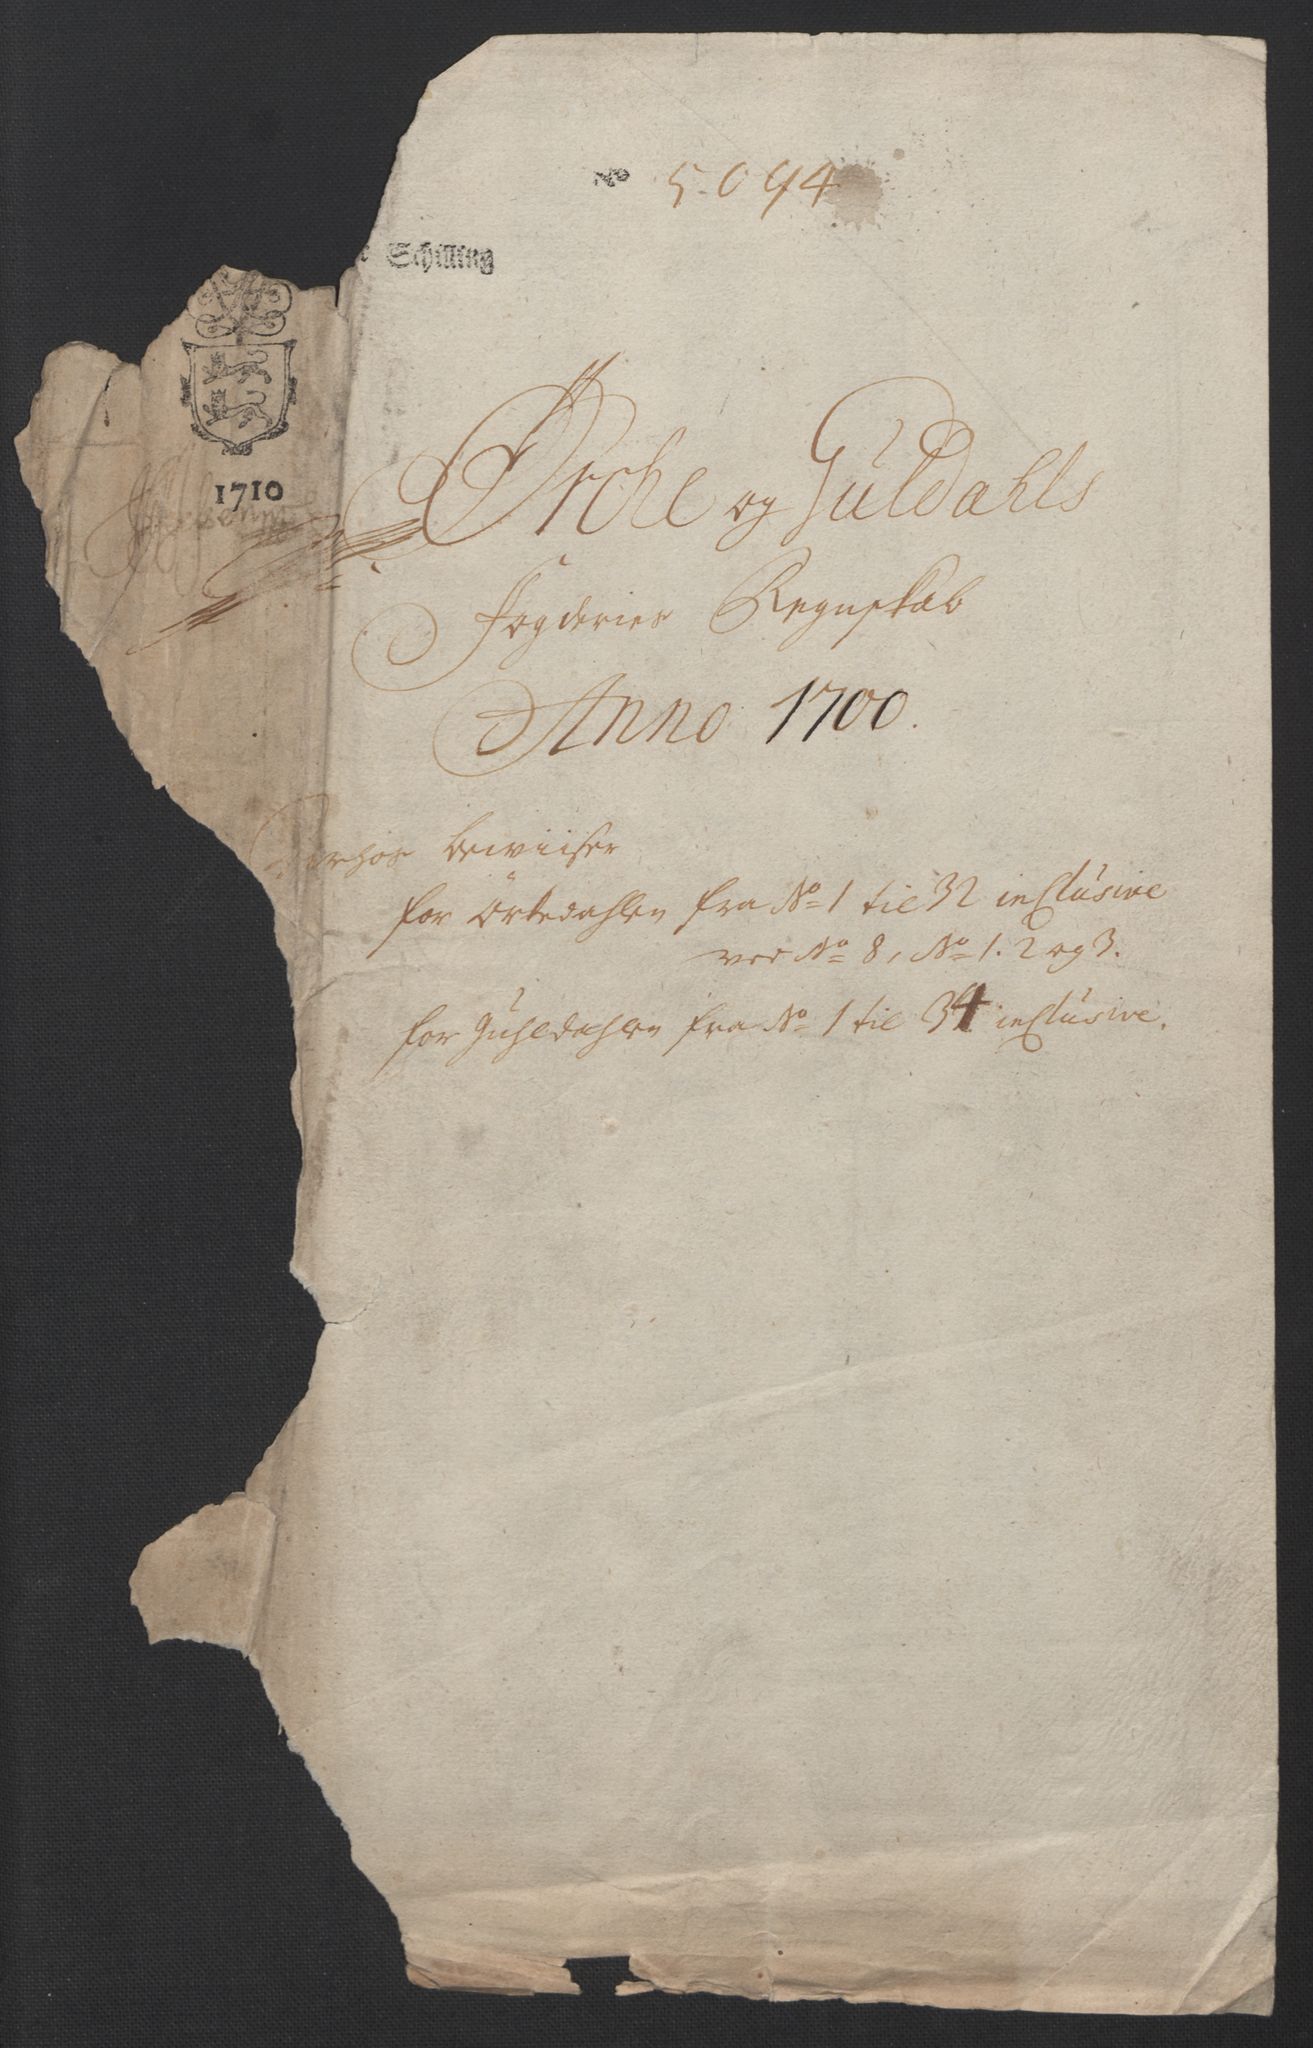 No 5094
Schilling
1710
Ørche og Guldahls
Fogderies Regnskab
Anno 1700.
Derhos bewiiser
for Örkedahlen fra No 1 til 32 inclusive
ved No 8, No 1. 2 og 3.
for Guhldahlen fra No 1 til 34 inclusive.